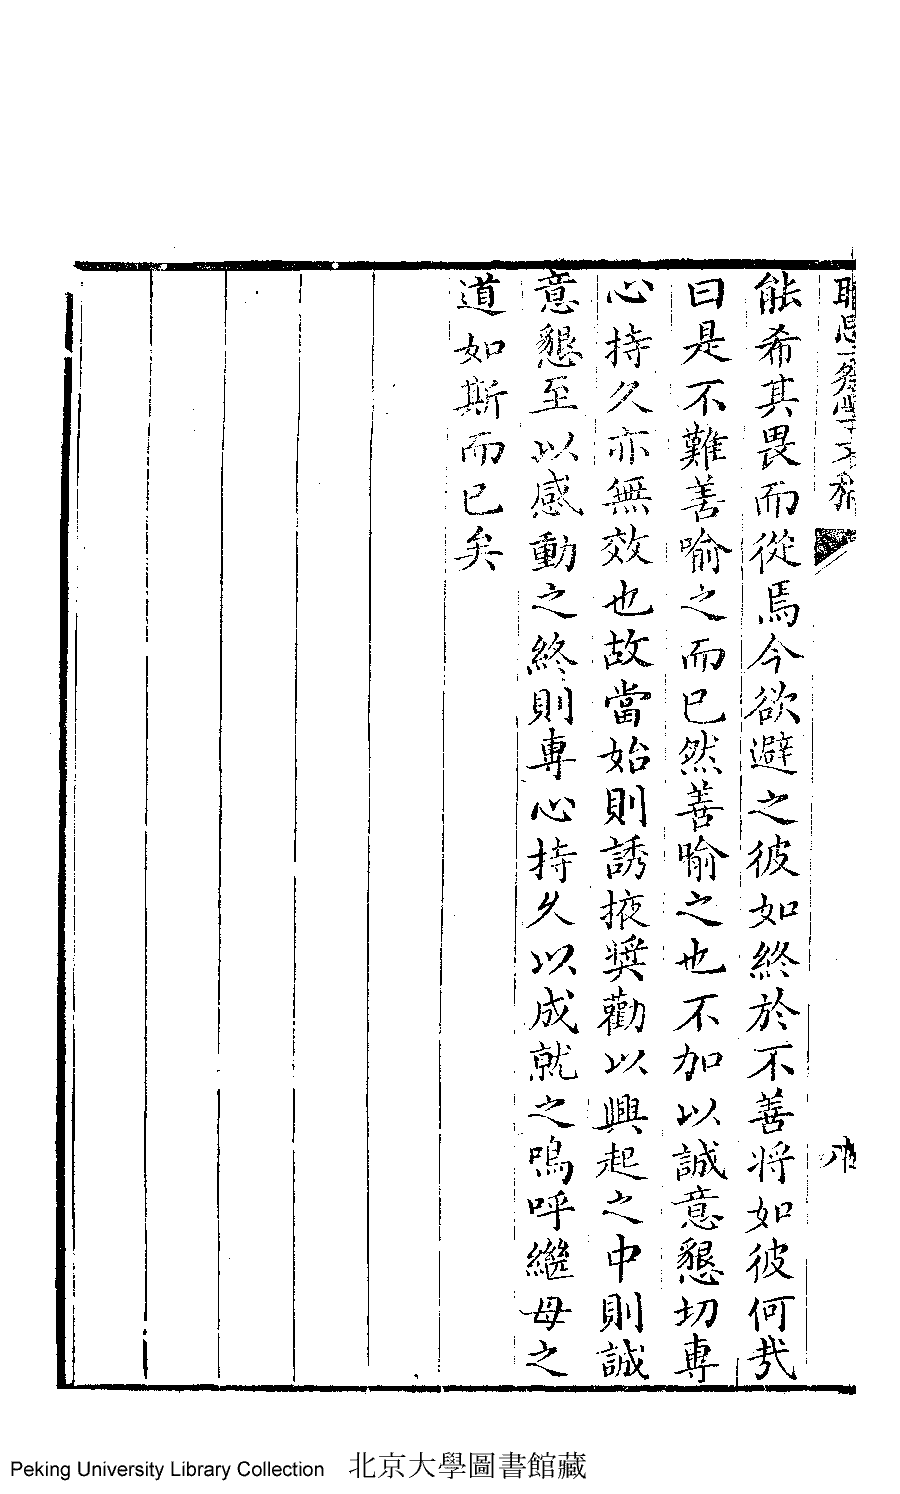 能希其畏而從焉今欲避之彼如終於不善將如彼何哉
曰是不難善喻之而已然善喻之也不加以誠意懇切專
心持久亦無效也故當始則誘掖奬勸以興起之中則誠
意懇至以感動之終則專心持久以成就之嗚呼繼母之
道如斯而已矣
Peking University Library Collection 北京大學圖書館藏